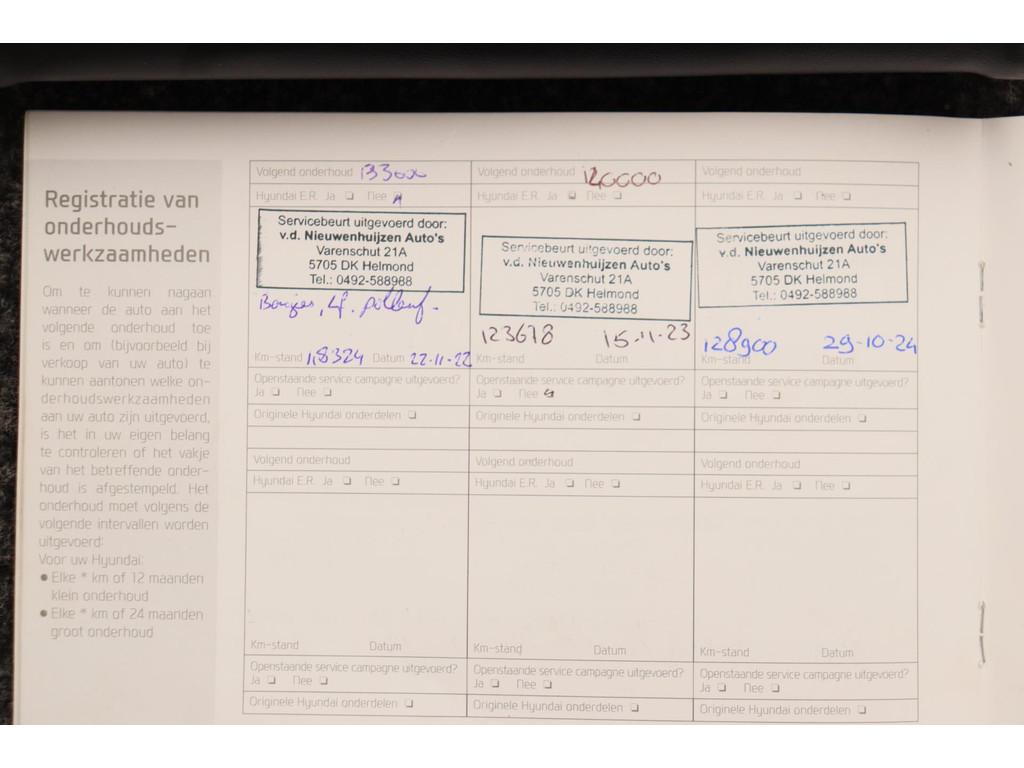 Registratie van
onderhouds-
werkzaamheden
Om te kunnen nagaan
wanneer de auto aan het
volgende onderhoud toe
is en om (bijvoorbeeld bij
verkoop van uw auto) te
kunnen aantonen welke on-
derhoudswerkzaamheden
aan uw auto zijn uitgevoerd,
is het in uw eigen belang
te controleren of het vakje
van het betreffende onder-
houd is afgestempeld. Het
onderhoud moet volgens de
volgende intervallen worden
uitgevoerd:
Voor uw Hyundai:
• Elke * km of 12 maanden
klein onderhoud
• Elke * km of 24 maanden
groot onderhoud
Volgend onderhoud 133000
Hyundai E.R. Ja Nee
Servicebeurt uitgevoerd door:
v.d. Nieuwenhuijzen Auto's
Varenschut 21A
5705 DK Helmond
Tel.: 0492-588988
Bougies,
Km-stand 118324 Datum 22-11-22
Openstaande service campagne uitgevoerd?
Ja Nee
Originele Hyundai onderdelen
Volgend onderhoud 120000
Hyundai E.R. Ja Nee
Servicebeurt uitgevoerd door:
v.d. Nieuwenhuijzen Auto's
Varenschut 21A
5705 DK Helmond
Tel.: 0492-588988
123678 15-11-23
Km-stand Datum
Openstaande service campagne uitgevoerd?
Ja Nee
Originele Hyundai onderdelen
Volgend onderhoud
Hyundai E.R. Ja Nee
Servicebeurt uitgevoerd door:
v.d. Nieuwenhuijzen Auto's
Varenschut 21A
5705 DK Helmond
Tel.: 0492-588988
128900 29-10-24
Km-stand Datum
Openstaande service campagne uitgevoerd?
Ja Nee
Originele Hyundai onderdelen
Volgend onderhoud
Hyundai E.R. Ja Nee
Km-stand Datum
Openstaande service campagne uitgevoerd?
Ja Nee
Originele Hyundai onderdelen
Volgend onderhoud
Hyundai E.R. Ja Nee
Km-stand Datum
Openstaande service campagne uitgevoerd?
Ja Nee
Originele Hyundai onderdelen
Volgend onderhoud
Hyundai E.R. Ja Nee
Km-stand Datum
Openstaande service campagne uitgevoerd?
Ja Nee
Originele Hyundai onderdelen